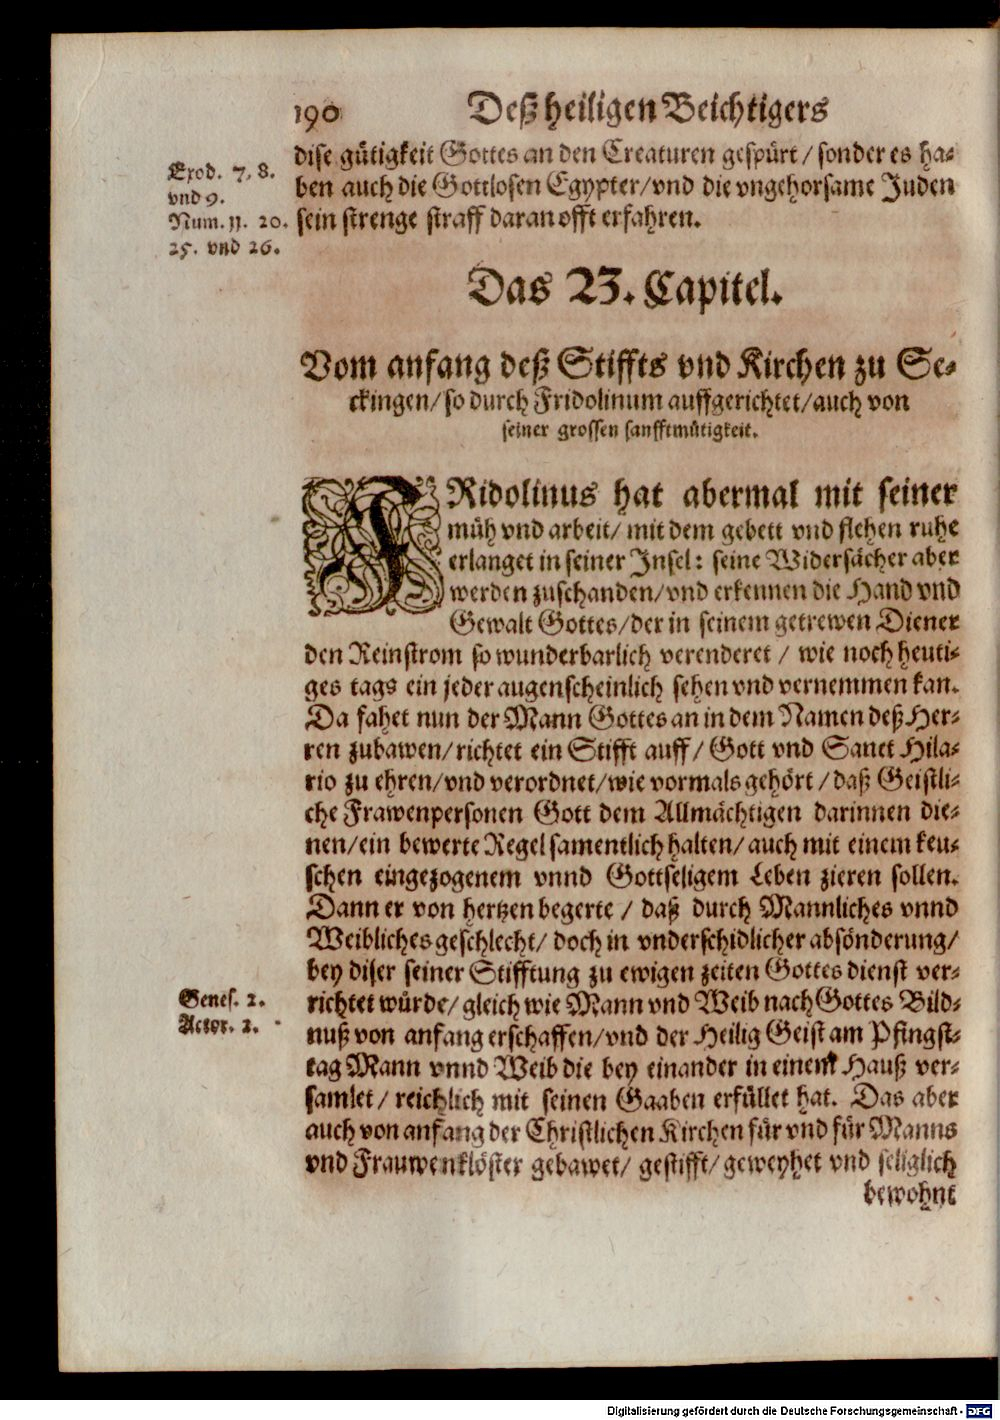 190 Deß heiligen Beichtigers
dise gütigkeit Gottes an den Creaturen gespürt / sonder es ha-
ben auch die Gottlosen Egypter/vnd die vngehorsame Juden
sein strenge straff daran offt erfahren.
Exod. 7, 8.
vnd 9.
Num. 11. 20.
25. vnd 26.
Das 23. Capitel.
Vom anfang deß Stiffts vnd Kirchen zu Se-
ckingen/ so durch Fridolinum auffgerichtet/auch von
seiner grossen sanfftmütigkeit.
FRidolinus hat abermal mit seiner
müh vnd arbeit/ mit dem gebett vnd flehen ruhe
erlanget in seiner Insel: seine Widersächer aber
werden zuschanden/vnd erkennen die Hand vnd
Gewalt Gottes/der in seinem getrewen Diener
den Reinstrom so wunderbarlich verenderet / wie noch heuti-
ges tags ein jeder augenscheinlich sehen vnd vernemmen kan.
Da fahet nun der Mann Gottes an in dem Namen deß Her-
ren zubawen/richtet ein Stifft auff/ Gott vnd Sanct Hila-
rio zu ehren/vnd verordnet/wie vormals gehört / daß Geistli-
che Frawenpersonen Gott dem Allmächtigen darinnen die-
nen/ein bewerte Regel samentlich halten/ auch mit einem keu-
schen eingezogenem vnnd Gottseligem Leben zieren sollen.
Dann er von hertzen begerte / daß durch Mannliches vnnd
Weibliches geschlecht/ doch in vnderschidlicher absönderung/
bey diser seiner Stifftung zu ewigen zeiten Gottes dienst ver-
richtet würde/ gleich wie Mann vnd Weib nach Gottes Bild-
nuß von anfang erschaffen/vnd der Heilig Geist am Pfingst-
tag Mann vnnd Weib die bey einander in einem Hauß ver-
samlet / reichlich mit seinen Gaaben erfüllet hat. Das aber
auch von anfang der Christlichen Kirchen für vnd für Manns
vnd Frauwenklöster gebawet/ gestifft/ geweyhet vnd seliglich
bewohnt
Genes. 2.
Actor. 2.
Digitalisierung gefördert durch die Deutsche Forschungsgemeinschaft - DFG